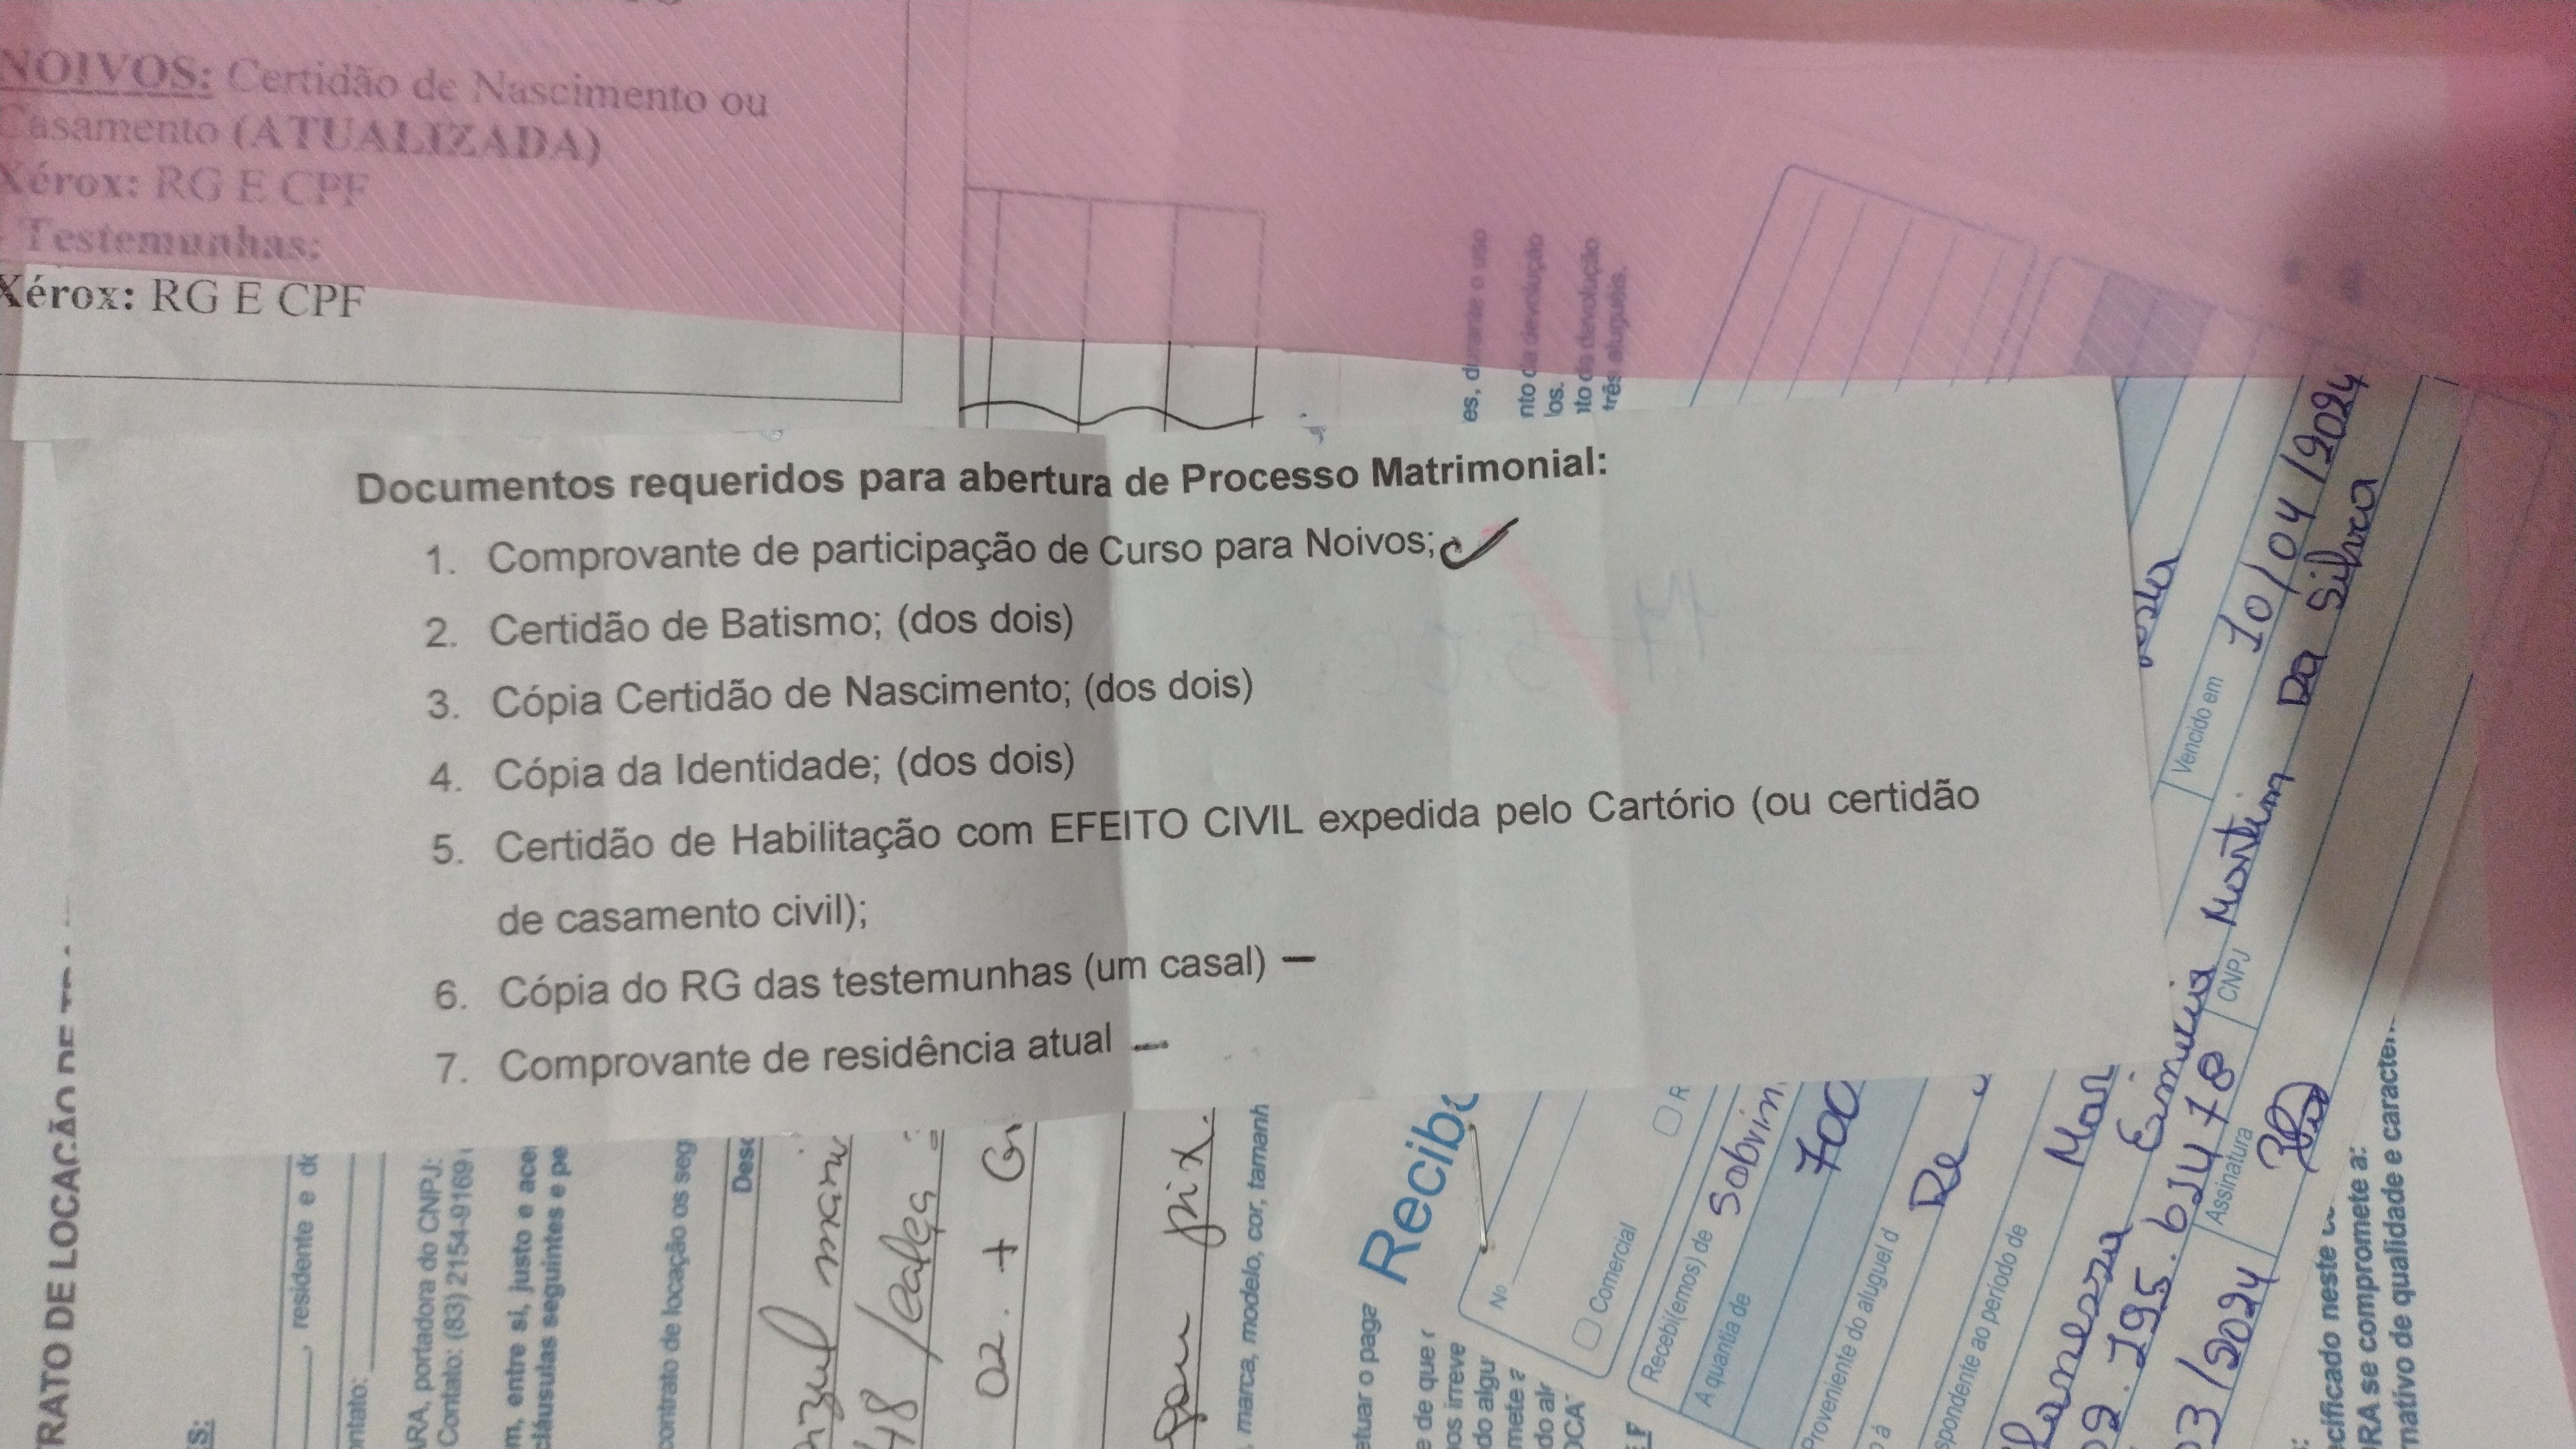 NOIVOS: Certidão de Nascimento ou
Casamento (ATUALIZADA)
Xérox: RG E CPF
Testemunhas:
Xérox: RG E CPF
Documentos requeridos para abertura de Processo Matrimonial:
1. Comprovante de participação de Curso para Noivos;
2. Certidão de Batismo; (dos dois)
3. Cópia Certidão de Nascimento; (dos dois)
4. Cópia da Identidade; (dos dois)
5. Certidão de Habilitação com EFEITO CIVIL expedida pelo Cartório (ou certidão
de casamento civil);
6. Cópia do RG das testemunhas (um casal) —
7. Comprovante de residência atual —
RATO DE LOCAÇÃO DE
ES:
, residente e do
ontato:
ARA, portadora do CNPJ:
Contato: (83) 2154-9169
m, entre si, justo e ace
cláusulas seguintes e pe
contrato de locação os seg
Desc
azul mari
48 /calça
02. + G
pix.
, marca, modelo, cor, tamanh
etuar o paga
e de que
os irreve
do algu
mete a
do alg
OCA
es, durante o uso
nto da devolução
los.
nto da devolução
três aluguéis.
Recibo
Nº
Comercial
R
Recebi(emos) de Sobrin
A quantia de 700
Proveniente do aluguel d
o á De
spondente ao período de Mar
Vanessa Emilia Martim Da Silva
02.195.614 78
CNPJ
Vencido em 10/04/2024
03/2024
Assinatura
ecificado neste
ORA se compromete a:
rnativo de qualidade e caracter